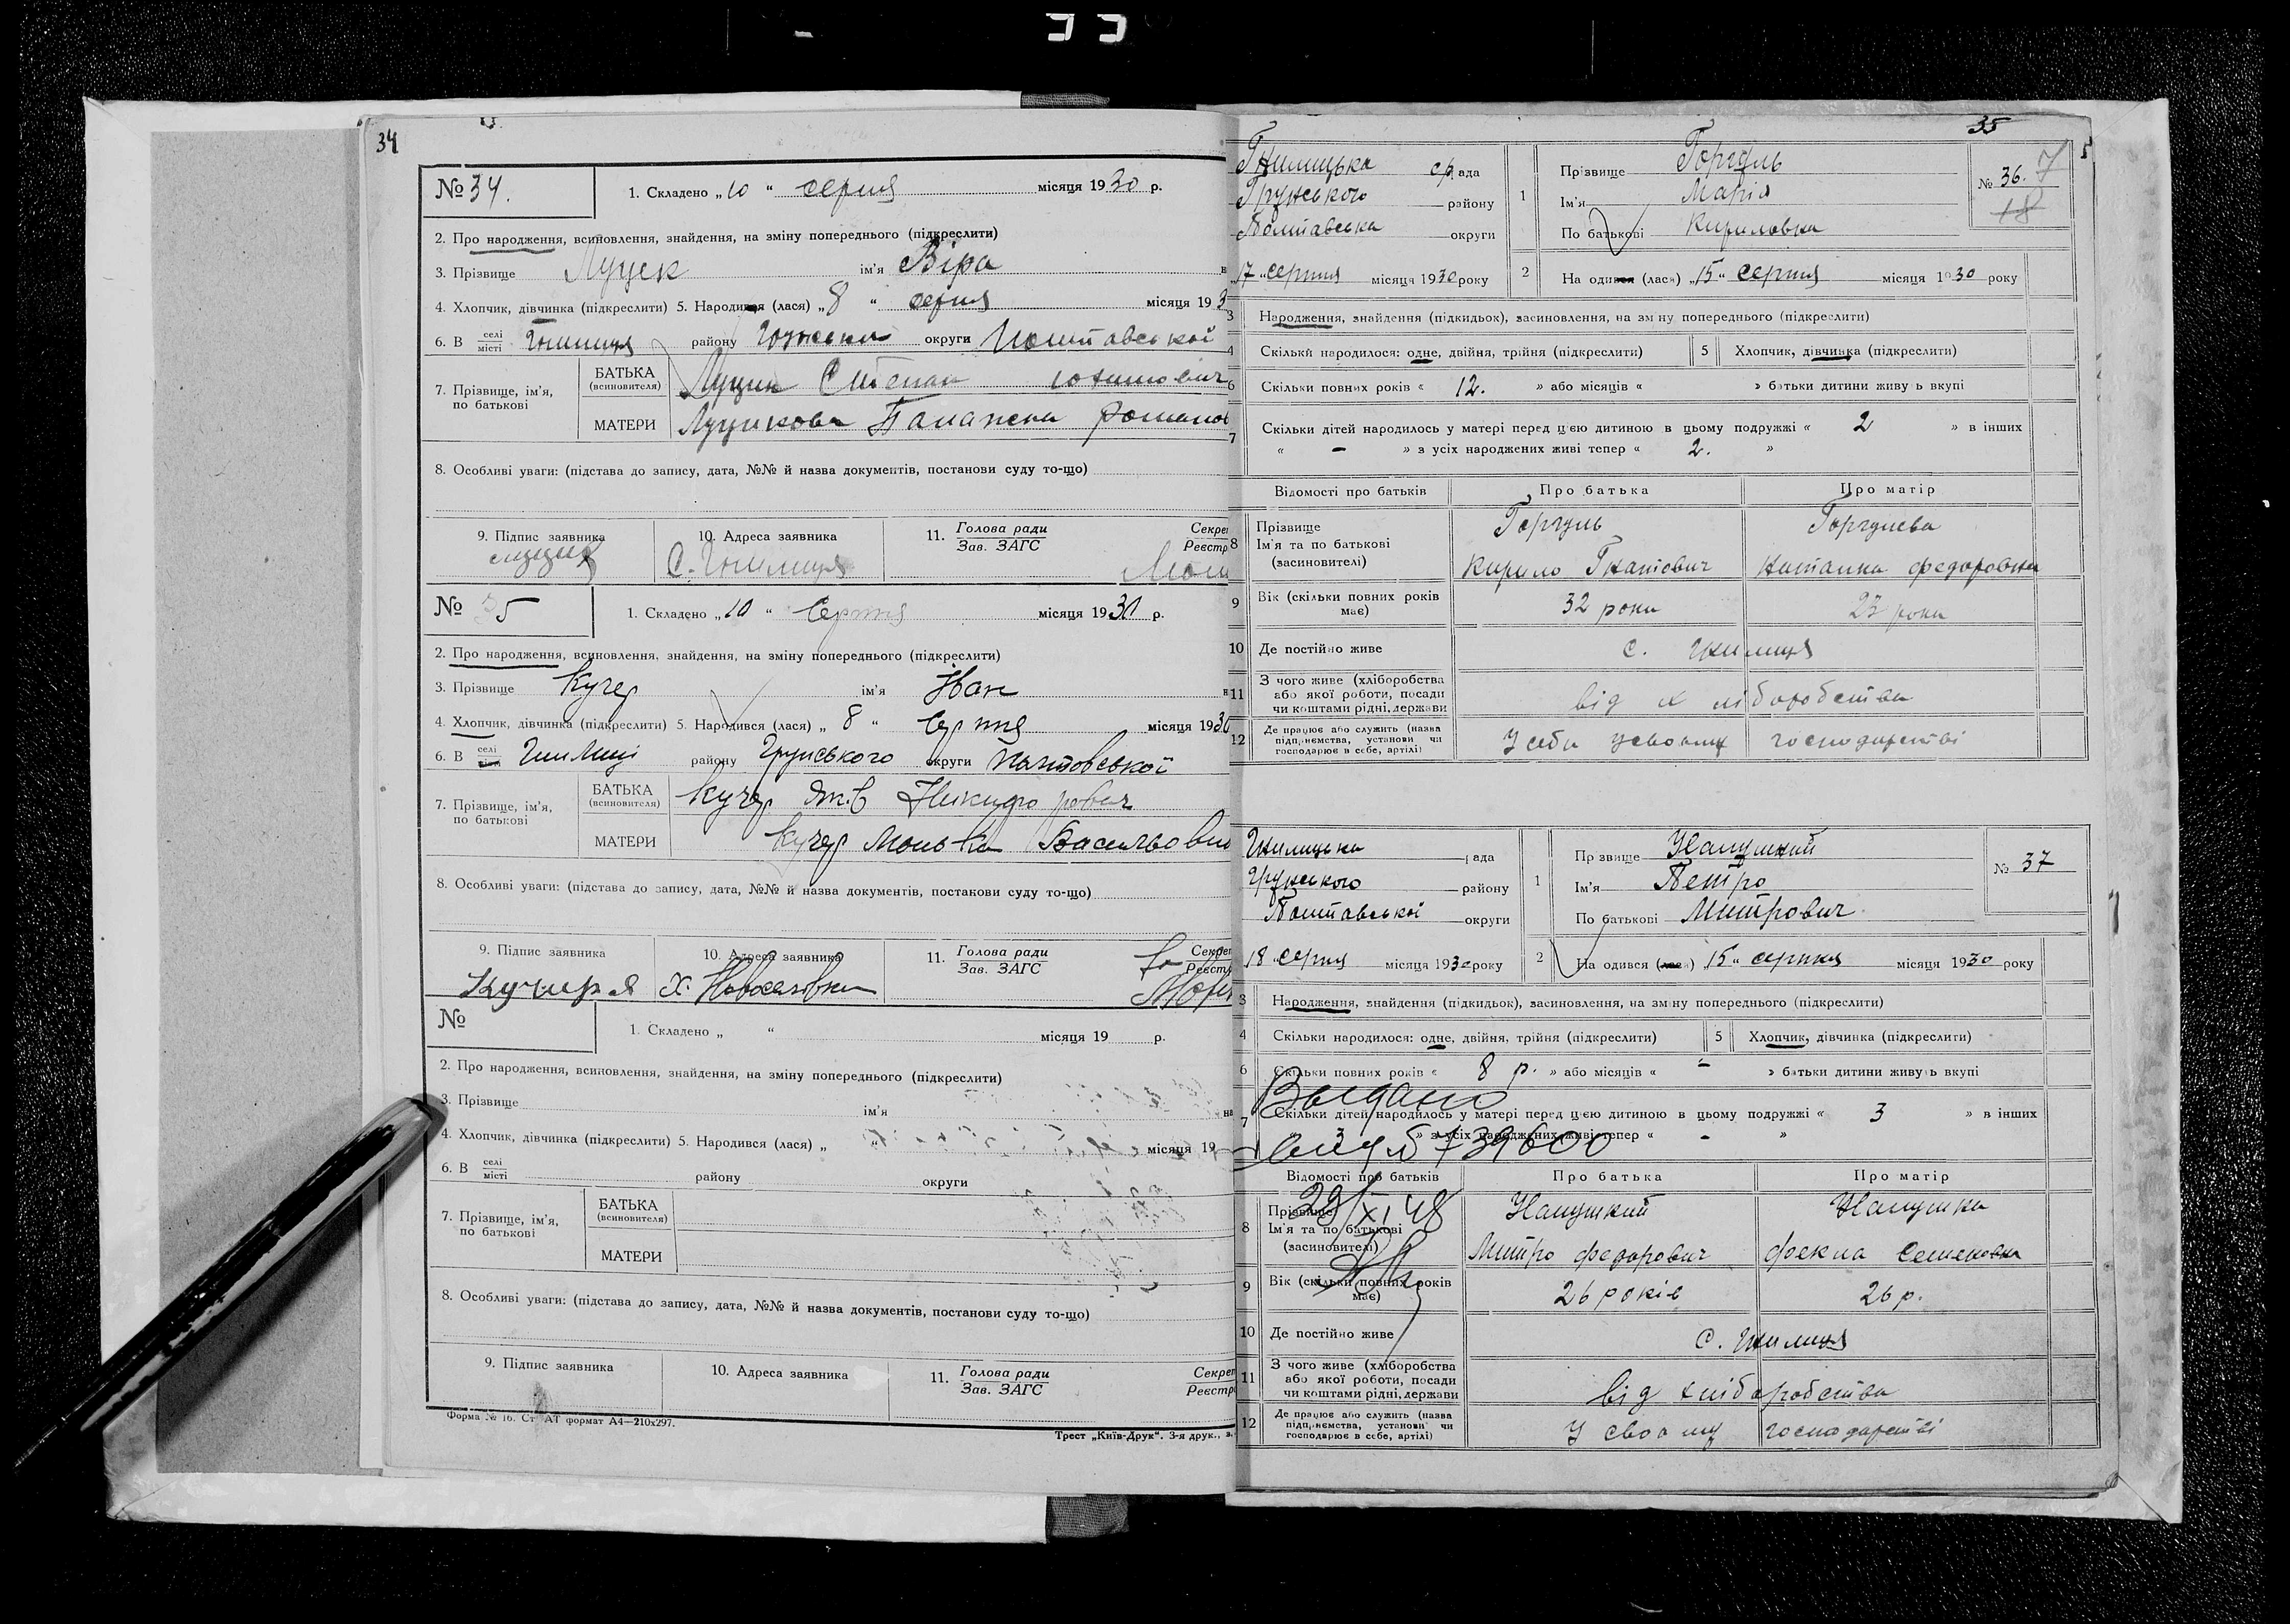 34
№ 34.
1. Складено „ 10 “ серпня місяця 1930 р.
2. Про народження, всиновлення, знайдення, на зміну попереднього (підкреслити)
3. Прізвище ім'я Віра
4. Хлопчик, дівчинка (підкреслити) 5. Народився (лася) „ 8 “ серпня місяця 193
6. В селі місті Гнилиця району округи Полтавської
7. Прізвище, ім'я, по батькові
БАТЬКА (всиновителя) Луцик Степан
МАТЕРИ Луцикова
8. Особливі уваги: (підстава до запису, дата, №№ й назва документів, постанови суду то-що)
9. Підпис заявника
10. Адреса заявника
С. Гнилиця
11. Голова ради
Зав. ЗАГС
№ 35
1. Складено „ 10 “ Серпня місяця 1930 р.
2. Про народження, всиновлення, знайдення, на зміну попереднього (підкреслити)
3. Прізвище Кучер ім'я Іван
4. Хлопчик, дівчинка (підкреслити) 5. Народився (лася) „ 8 “ Серпня місяця 1930
6. В селі Гнилиці району Грунського округи Полтовської
7. Прізвище, ім'я, по батькові
БАТЬКА (всиновителя) Кучер Яків Никифорович
МАТЕРИ Кучер
8. Особливі уваги: (підстава до запису, дата, №№ й назва документів, постанови суду то-що)
9. Підпис заявника
10. Адреса заявника
11. Голова ради
Зав. ЗАГС
Х. Новоселовка
№
1. Складено „ “ місяця 19 р.
2. Про народження, всиновлення, знайдення, на зміну попереднього (підкреслити)
3. Прізвище ім'я
4. Хлопчик, дівчинка (підкреслити) 5. Народився (лася) „ “ місяця 19
6. В селі місті району округи
7. Прізвище, ім'я, по батькові
БАТЬКА (всиновителя)
МАТЕРИ
8. Особливі уваги: (підстава до запису, дата, №№ й назва документів, постанови суду то-що)
9. Підпис заявника
10. Адреса заявника
11. Голова ради
Зав. ЗАГС
Форма № 16. Ст АТ формат А4—210х297.
Трест „Київ-Друк“. 3-я друк.,
35
Гнилицька с/рада
Грунського району
Полтавська округи
17 „ серпня місяця 1930 року
1 Прізвище Горгуль
Ім'я Марія
По батькові Кириловна
№ 36. 7
18
2 На одився (лася) „ 15 “ серпня місяця 1930 року
3 Народження, знайдення (підкидьок), засиновлення, на зміну попереднього (підкреслити)
4 Скільки народилося: одне, двійня, трійня (підкреслити)
5 Хлопчик, дівчинка (підкреслити)
6 Скільки повних років « 12. » або місяців « » батьки дитини живуть вкупі
7 Скільки дітей народилось у матері перед цією дитиною в цьому подружжі « 2 » в інших
« - » з усіх народжених живі тепер « 2. »
Відомості про батьків
Про батька
Про матір
8 Прізвище
Ім'я та по батькові
(засиновителі)
Горгуль
Кирило Гнатович
Горгулева
Наталка Федоровна
9 Вік (скільки повних років має)
32 роки
23 роки
10 Де постійно живе
с. Гнилиця
11 З чого живе (хліборобства
або якої роботи, посади
чи коштами рідні, держави
від хліборобства
12 Де працює або служить (назва
підприємства, установи чи
господарює в себе, артілі)
У себе господарстві
Гнилицька рада
Грунського району
Полтавської округи
18 „ серпня місяця 1930 року
1 Прізвище
Ім'я Петро
По батькові Митрович
№ 37
2 На одився (лася) „ 15 “ серпня місяця 1930 року
3 Народження, знайдення (підкидьок), засиновлення, на зміну попереднього (підкреслити)
4 Скільки народилося: одне, двійня, трійня (підкреслити)
5 Хлопчик, дівчинка (підкреслити)
6 Скільки повних років « 8 р. » або місяців « - » батьки дитини живуть вкупі
Выдано
7 Скільки дітей народилось у матері перед цією дитиною в цьому подружжі « 3 » в інших
« 3 » з усіх народжених живі тепер « - »
739600
29/XI 48
Відомості про батьків
Про батька
Про матір
8 Прізвище
Ім'я та по батькові
(засиновителі)
Митро Федорович
Фекла Семеновна
9 Вік (скільки повних років має)
26 років
26 р.
10 Де постійно живе
с. Гнилиця
11 З чого живе (хліборобства
або якої роботи, посади
чи коштами рідні, держави
від хліборобства
12 Де працює або служить (назва
підприємства, установи чи
господарює в себе, артілі)
У своому господарстві